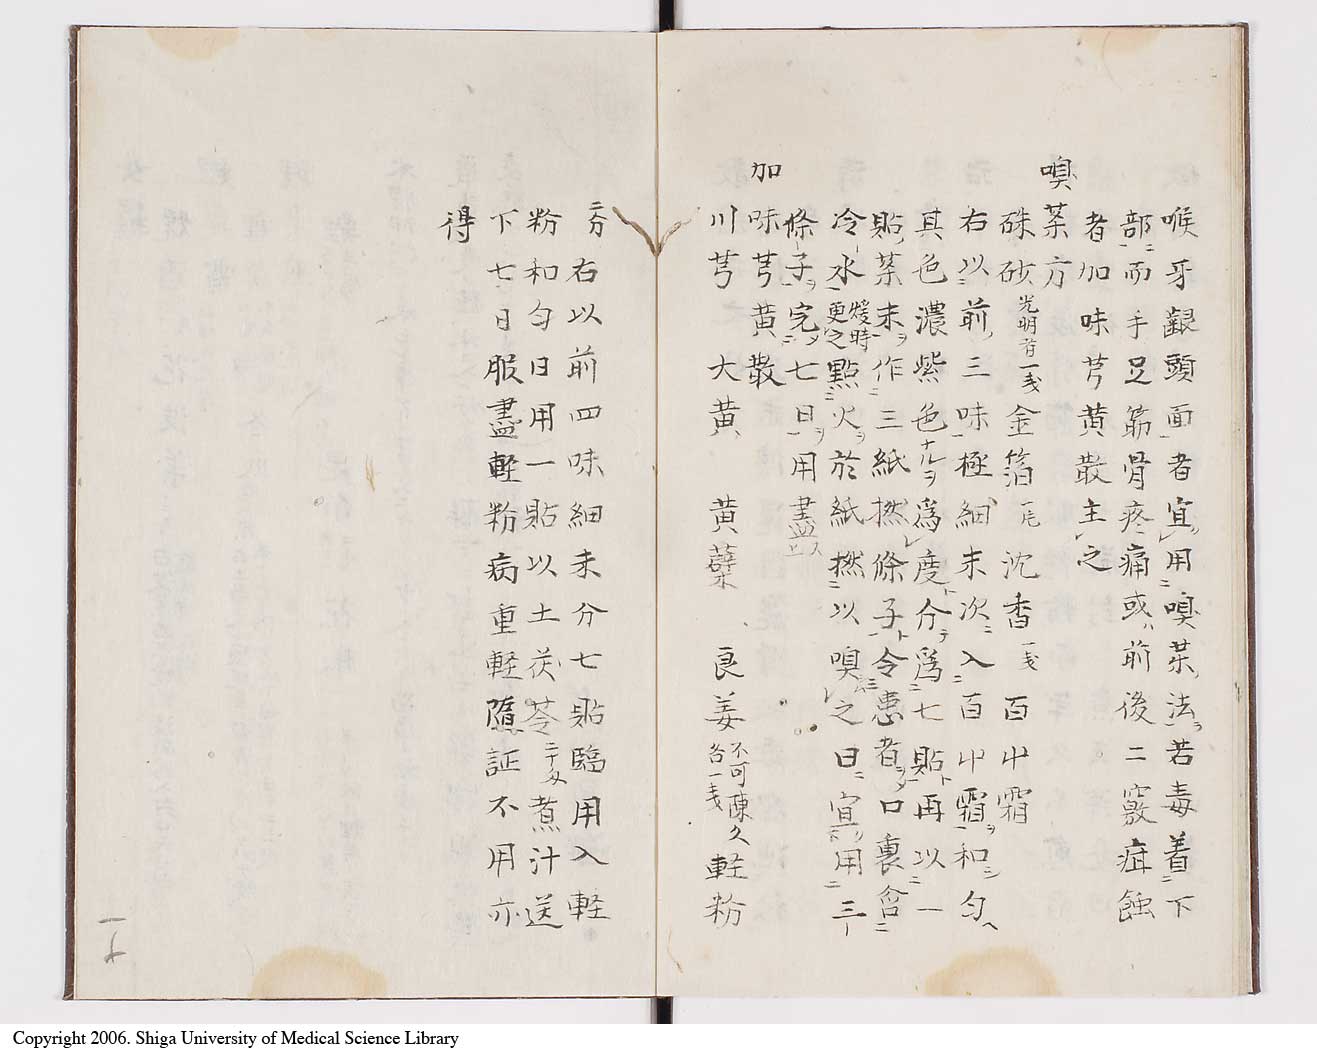 喉牙齦頭面者宜用嗅薬法若毒着下
部而手足筋骨疼痛或前後二竅疳蝕
者加味芎黄散主之
嗅薬方
硃砂光明者一戔金箔一尾沈香一戔百屮霜
右以前三味極細末次入百屮霜和匀
其色濃紫色ナルヲ為度分為七貼再以一
貼薬末作三紙撚條子令患者口裏含
冷水煖時更之點火於紙撚以嗅之日宜用三
條子完七日用盡
加味芎黄散
川芎 大黄 黄蘗 良姜不可陳久各一戔軽粉
二分右以前四味細末分七貼臨用入軽
粉和匀日用一貼以土茯苓二十匁煮汁送
下七日服盡軽粉病重軽隨証不用亦
得
Copyright 2006. Shiga University of Medical Science Library